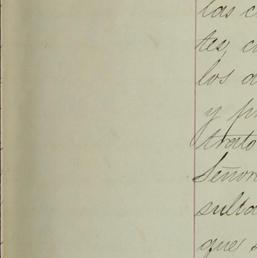 las c
tes, c
los a
y pr
trato
Señor
sulta
que s